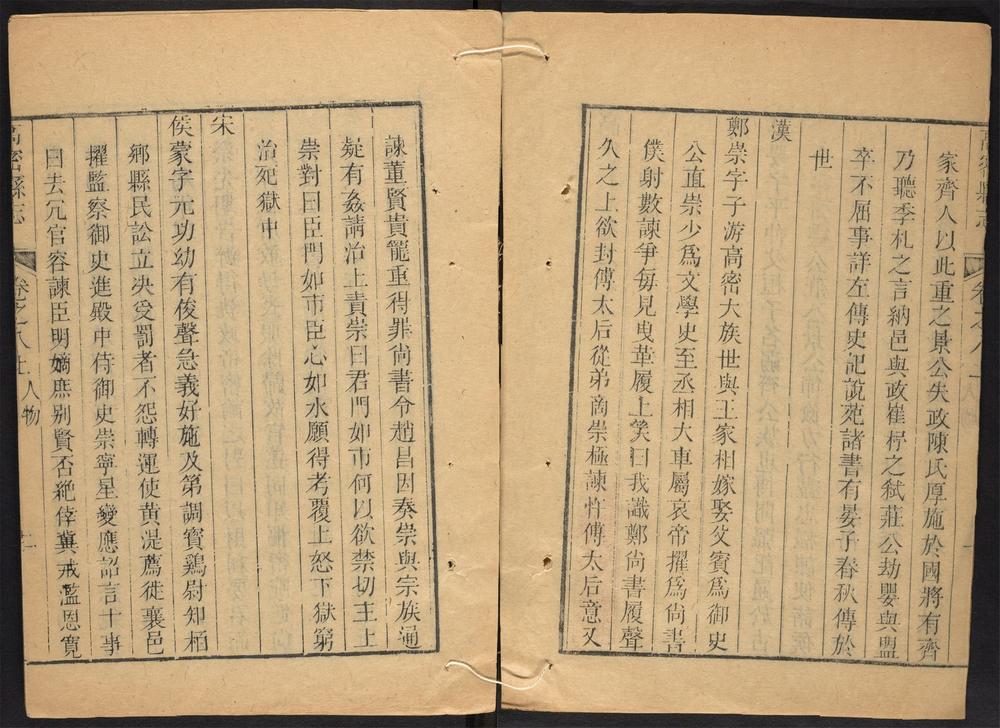 高密縣志
卷之八
家齊人以此重之景公失政陳氏厚施於國將有齊
乃聽季札之言納邑與政崔杼之弑莊公劫嬰與盟
卒不屈事詳左傳史記說苑諸書有晏子春秋傳於
世
漢
鄭崇字子游高密大族世與王家相嫁娶父賓爲御史
公直崇少爲文學史至丞相大車屬哀帝擢爲尚書
僕射數諫爭每見曳革履上笑曰我識鄭尚書履聲
久之上欲封傅太后從弟商崇極諫忤傅太后意又
諫董賢貴寵重得罪尚書令趙昌因奏崇與宗族通
疑有姦請治上責崇曰君門如市何以欲禁切主上
崇對曰臣門如市臣心如水願得考覆上怒下獄窮
治死獄中
宋
侯蒙字元功幼有俊聲急義好施及第調寳鷄尉知栢
鄉縣民訟立决受罰者不怨轉運使黄湜薦徙襄邑
擢監察御史進殿中侍御史崇寧星變應詔言十事
曰去冗官容諫臣明嫡庶别賢否絶倖冀戒濫恩寛
高密縣志
卷之八上 人物
二